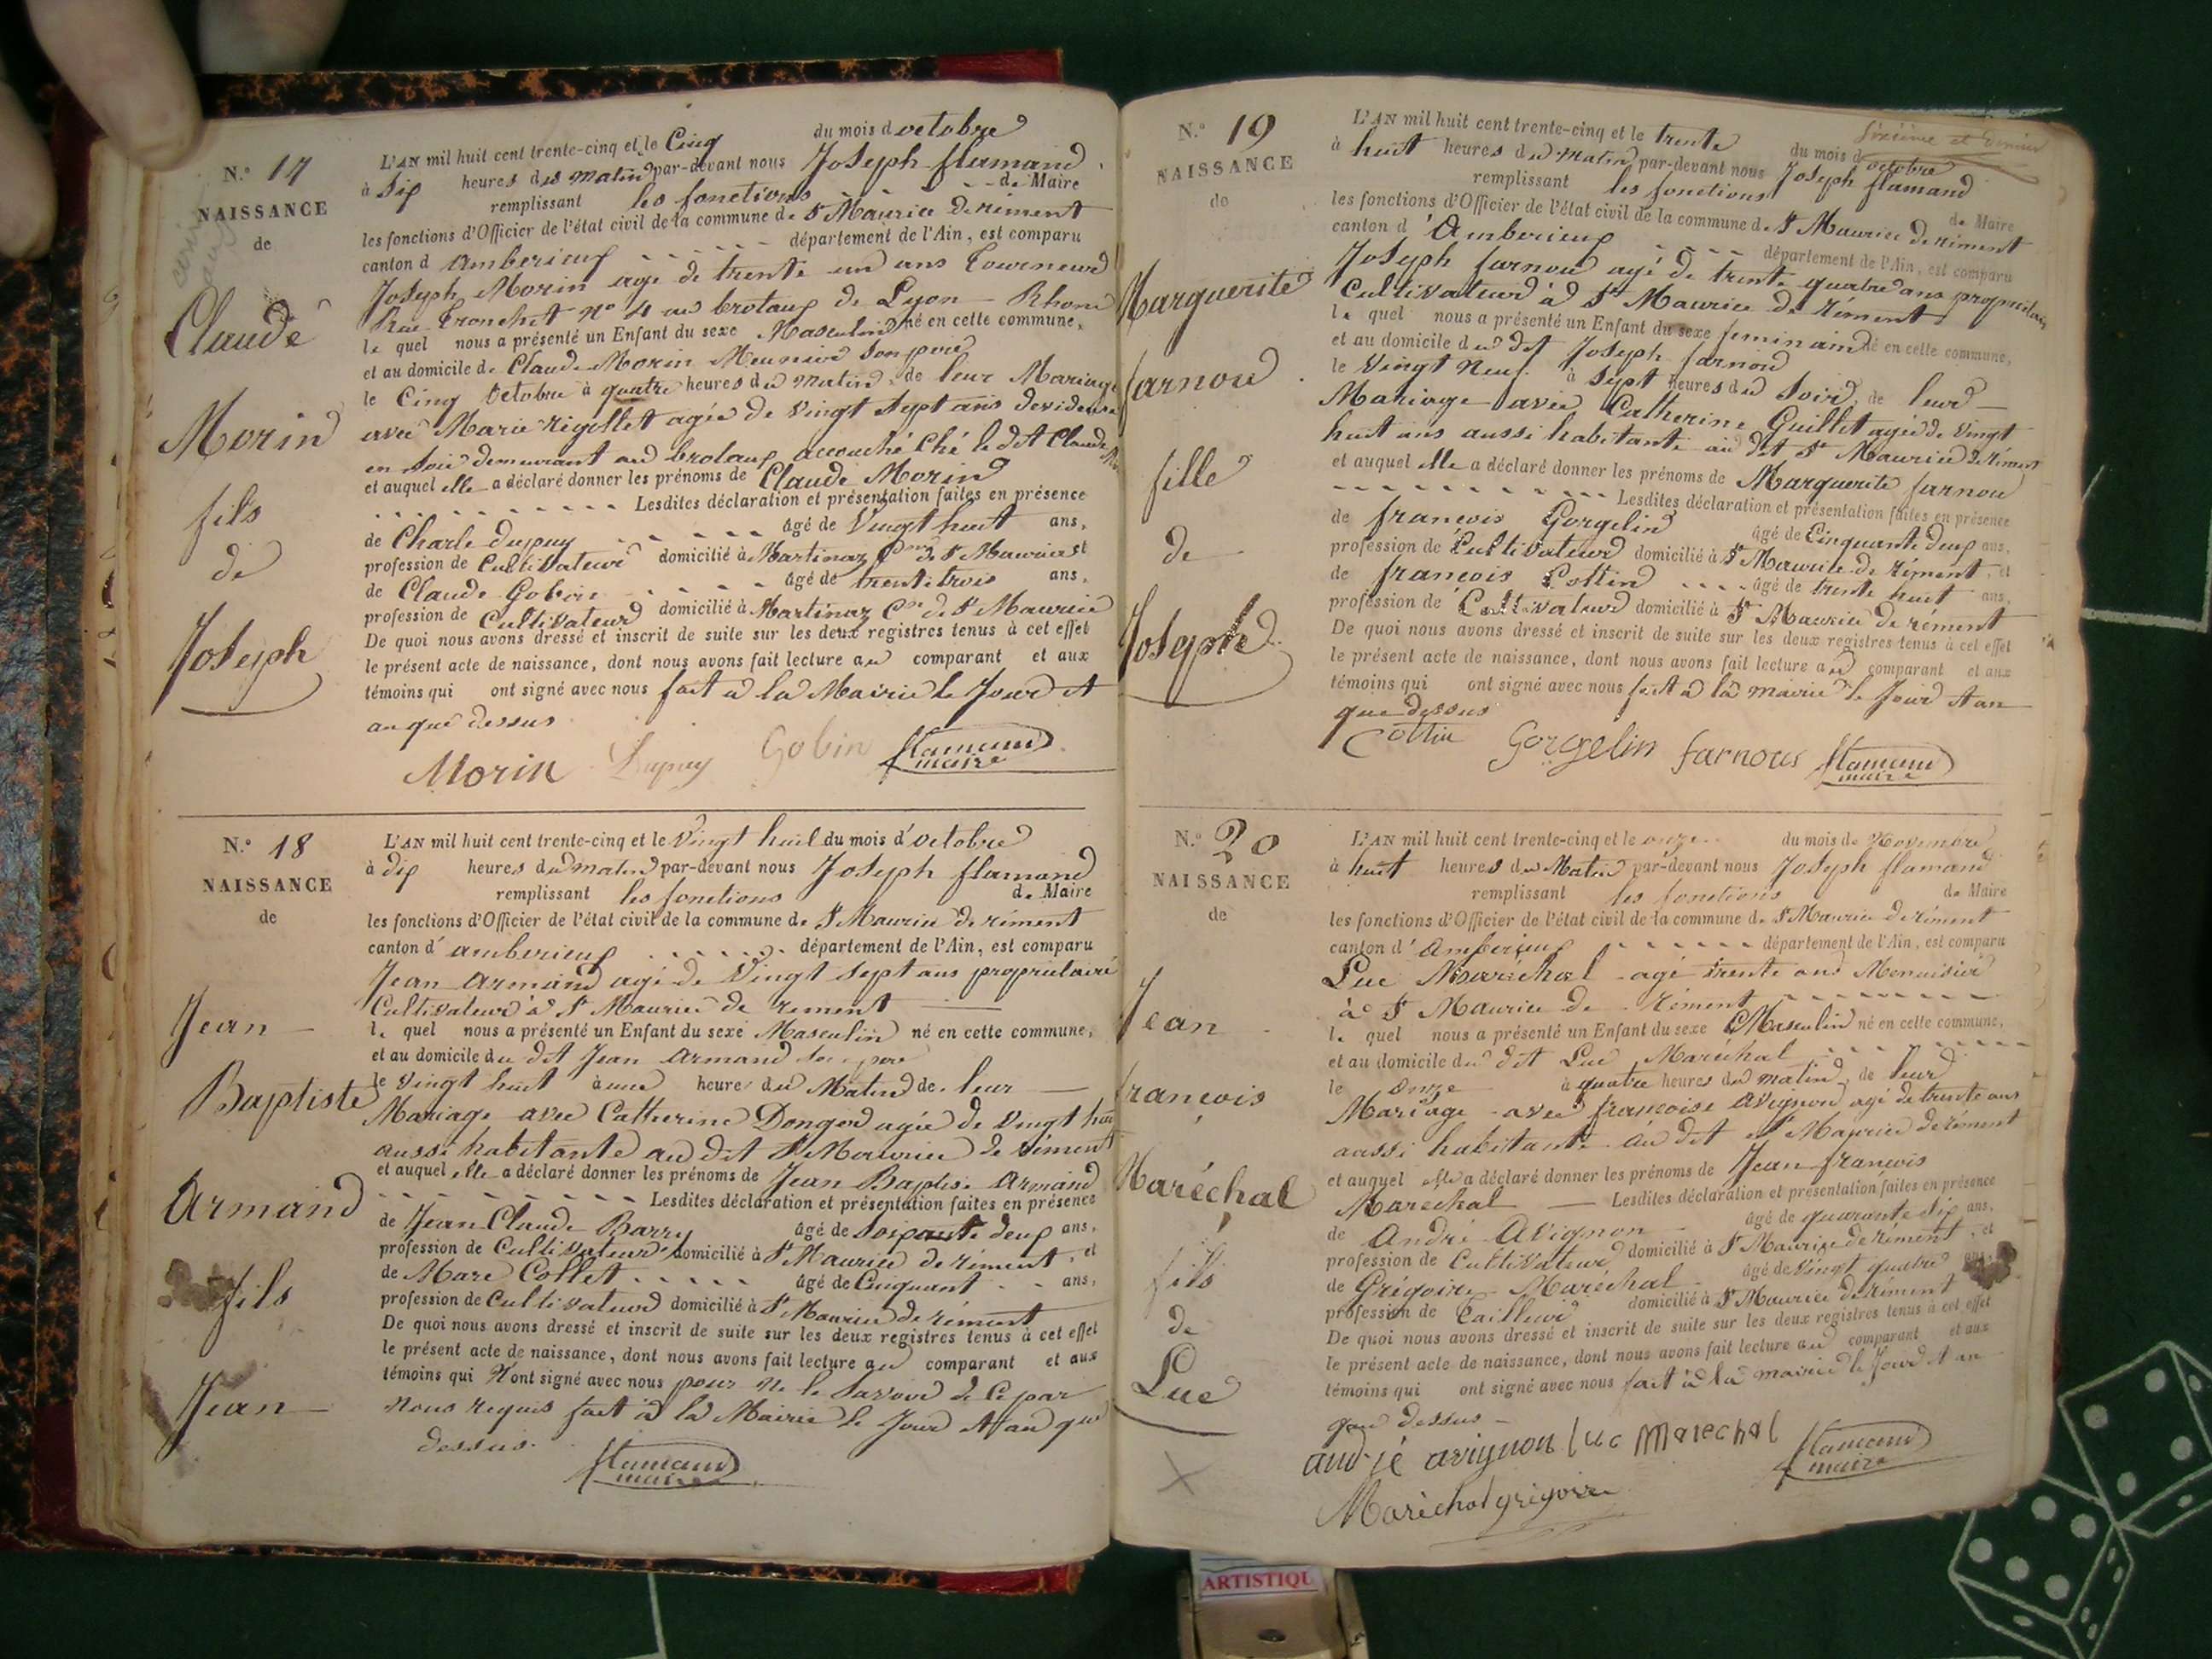 N.° 17
NAISSANCE
de
Claude
Morin
fils
de
Joseph
L'AN mil huit cent trente-cinq et le Cinq du mois d octobre
à dix heures du matin par-devant nous Joseph flamand
remplissant les fonctions de Maire
les fonctions d'Officier de l'état civil de la commune de St Maurice de rément
canton d amberieux département de l'Ain, est comparu
Joseph Morin agé de trente un ans tourneur
Rue tronchet n° 4 au brotaux de Lyon - Rhone
le quel nous a présenté un Enfant du sexe Masculin né en cette commune,
et au domicile de Claude Morin Meunier son pere
le Cinq octobre à quatre heures du matin, de leur Mariage
avec Marie rigollet agée de vingt sept ans devideuse
en soie demeurant au brotaux accouché ché le dit Claude
et auquel elle a déclaré donner les prénoms de Claude Morin
Lesdites déclaration et présentation faites en présence
de Charle dupuy âgé de Vingt huit ans,
profession de Cultivateur domicilié à Martinaz Cne de St Maurice et
de Claude Gobin âgé de trente trois ans,
profession de Cultivateur domicilié à Martinaz Cne de St Maurice
De quoi nous avons dressé et inscrit de suite sur les deux registres tenus à cet effet
le présent acte de naissance, dont nous avons fait lecture au comparant et aux
témoins qui ont signé avec nous fait à la Mairie le Jour et
an que dessus
Morin Dupuy Gobin flamand
maire
N.° 18
NAISSANCE
de
Jean
Baptiste
Armand
fils
Jean
L'AN mil huit cent trente-cinq et le Vingt huit du mois d'octobre
à dix heures du matin par-devant nous Joseph flamand
remplissant les fonctions de Maire
les fonctions d'Officier de l'état civil de la commune de St Maurice de rément
canton d'amberieux département de l'Ain, est comparu
Jean armand agé de Vingt sept ans propriétaire
Cultivateur à St Maurice de rement
le quel nous a présenté un Enfant du sexe Masculin né en cette commune,
et au domicile du dit Jean armand son pere
le vingt huit à une heure du Matin de leur
Mariage avec Catherine Donger agée de vingt huit
aussi habitante au dit St Maurice de rément
et auquel elle a déclaré donner les prénoms de Jean Baptise Armand
Lesdites déclaration et présentation faites en présence
de Jean Claude Barry âgé de Soixante deux ans,
profession de Cultivateur domicilié à St Maurice de rément, et
de Marc Collet âgé de Cinquant ans,
profession de Cultivateur domicilié à St Maurice de rément
De quoi nous avons dressé et inscrit de suite sur les deux registres tenus à cet effet
le présent acte de naissance, dont nous avons fait lecture au comparant et aux
témoins qui N'ont signé avec nous pour ne le savoir de Ce par
nous requis fait à la Mairie le Jour et an que
dessus.
flamand
maire
N.° 19
NAISSANCE
de
Marguerite
farnou
fille
de
Joseph
Sixième et dernier
L'AN mil huit cent trente-cinq et le trente du mois d octobre
à huit heures du matin par-devant nous Joseph flamand
remplissant les fonctions de Maire
les fonctions d'Officier de l'état civil de la commune de St Maurice de rément
canton d'Amberieux département de l'Ain, est comparu
Joseph farnou agé de trente quatre ans propriétaire
Cultivateur à St Maurice de rément
le quel nous a présenté un Enfant du sexe feminain né en cette commune,
et au domicile du dit Joseph farnou
le Vingt Neuf à sept heures du Soir, de leur
Mariage avec Catherine Guillet agée de vingt
huit ans aussi habitante au dit St Maurice de rément
et auquel elle a déclaré donner les prénoms de Marguerite farnou
Lesdites déclaration et présentation faites en présence
de françois Gorgelin âgé de Cinquante deux ans,
profession de Cultivateur domicilié à St Maurice de rément, et
de françois Cottin âgé de trente huit ans,
profession de Cultivateur domicilié à St Maurice de rément
De quoi nous avons dressé et inscrit de suite sur les deux registres tenus à cet effet
le présent acte de naissance, dont nous avons fait lecture au comparant et aux
témoins qui ont signé avec nous fait à la mairie le Jour et an
que dessus
Cottin Gorgelin farnoux flamand
maire
N.° 20
NAISSANCE
de
Jean
françois
Maréchal
fils
de
Luc
L'AN mil huit cent trente-cinq et le onze du mois de Novembre
à huit heures du Matin par-devant nous Joseph flamand
remplissant les fonctions de Maire
les fonctions d'Officier de l'état civil de la commune de St Maurice de rément
canton d'Amberieux département de l'Ain, est comparu
Luc Maréchal agé trente ans Menuisier
à St Maurice de rément
le quel nous a présenté un Enfant du sexe Masculin né en cette commune,
et au domicile du dit Luc Maréchal
le onze à quatre heures du matin, de leur
Mariage avec françoise avignon agé de trente ans
aussi habitante au dit St Maurice de rément
et auquel elle a déclaré donner les prénoms de Jean françois
Maréchal Lesdites déclaration et présentation faites en présence
de André Avignon âgé de quarante dix ans,
profession de Cultivateur domicilié à St Maurice de rément, et
de Grégoire Maréchal âgé de Vingt quatre ans,
profession de Tailleur domicilié à St Maurice de rément
De quoi nous avons dressé et inscrit de suite sur les deux registres tenus à cet effet
le présent acte de naissance, dont nous avons fait lecture au comparant et aux
témoins qui ont signé avec nous fait à la mairie le Jour et an
que dessus
andré avignon luc Marechal flamand
maire
Maréchal grégoire
ARTISTIQU